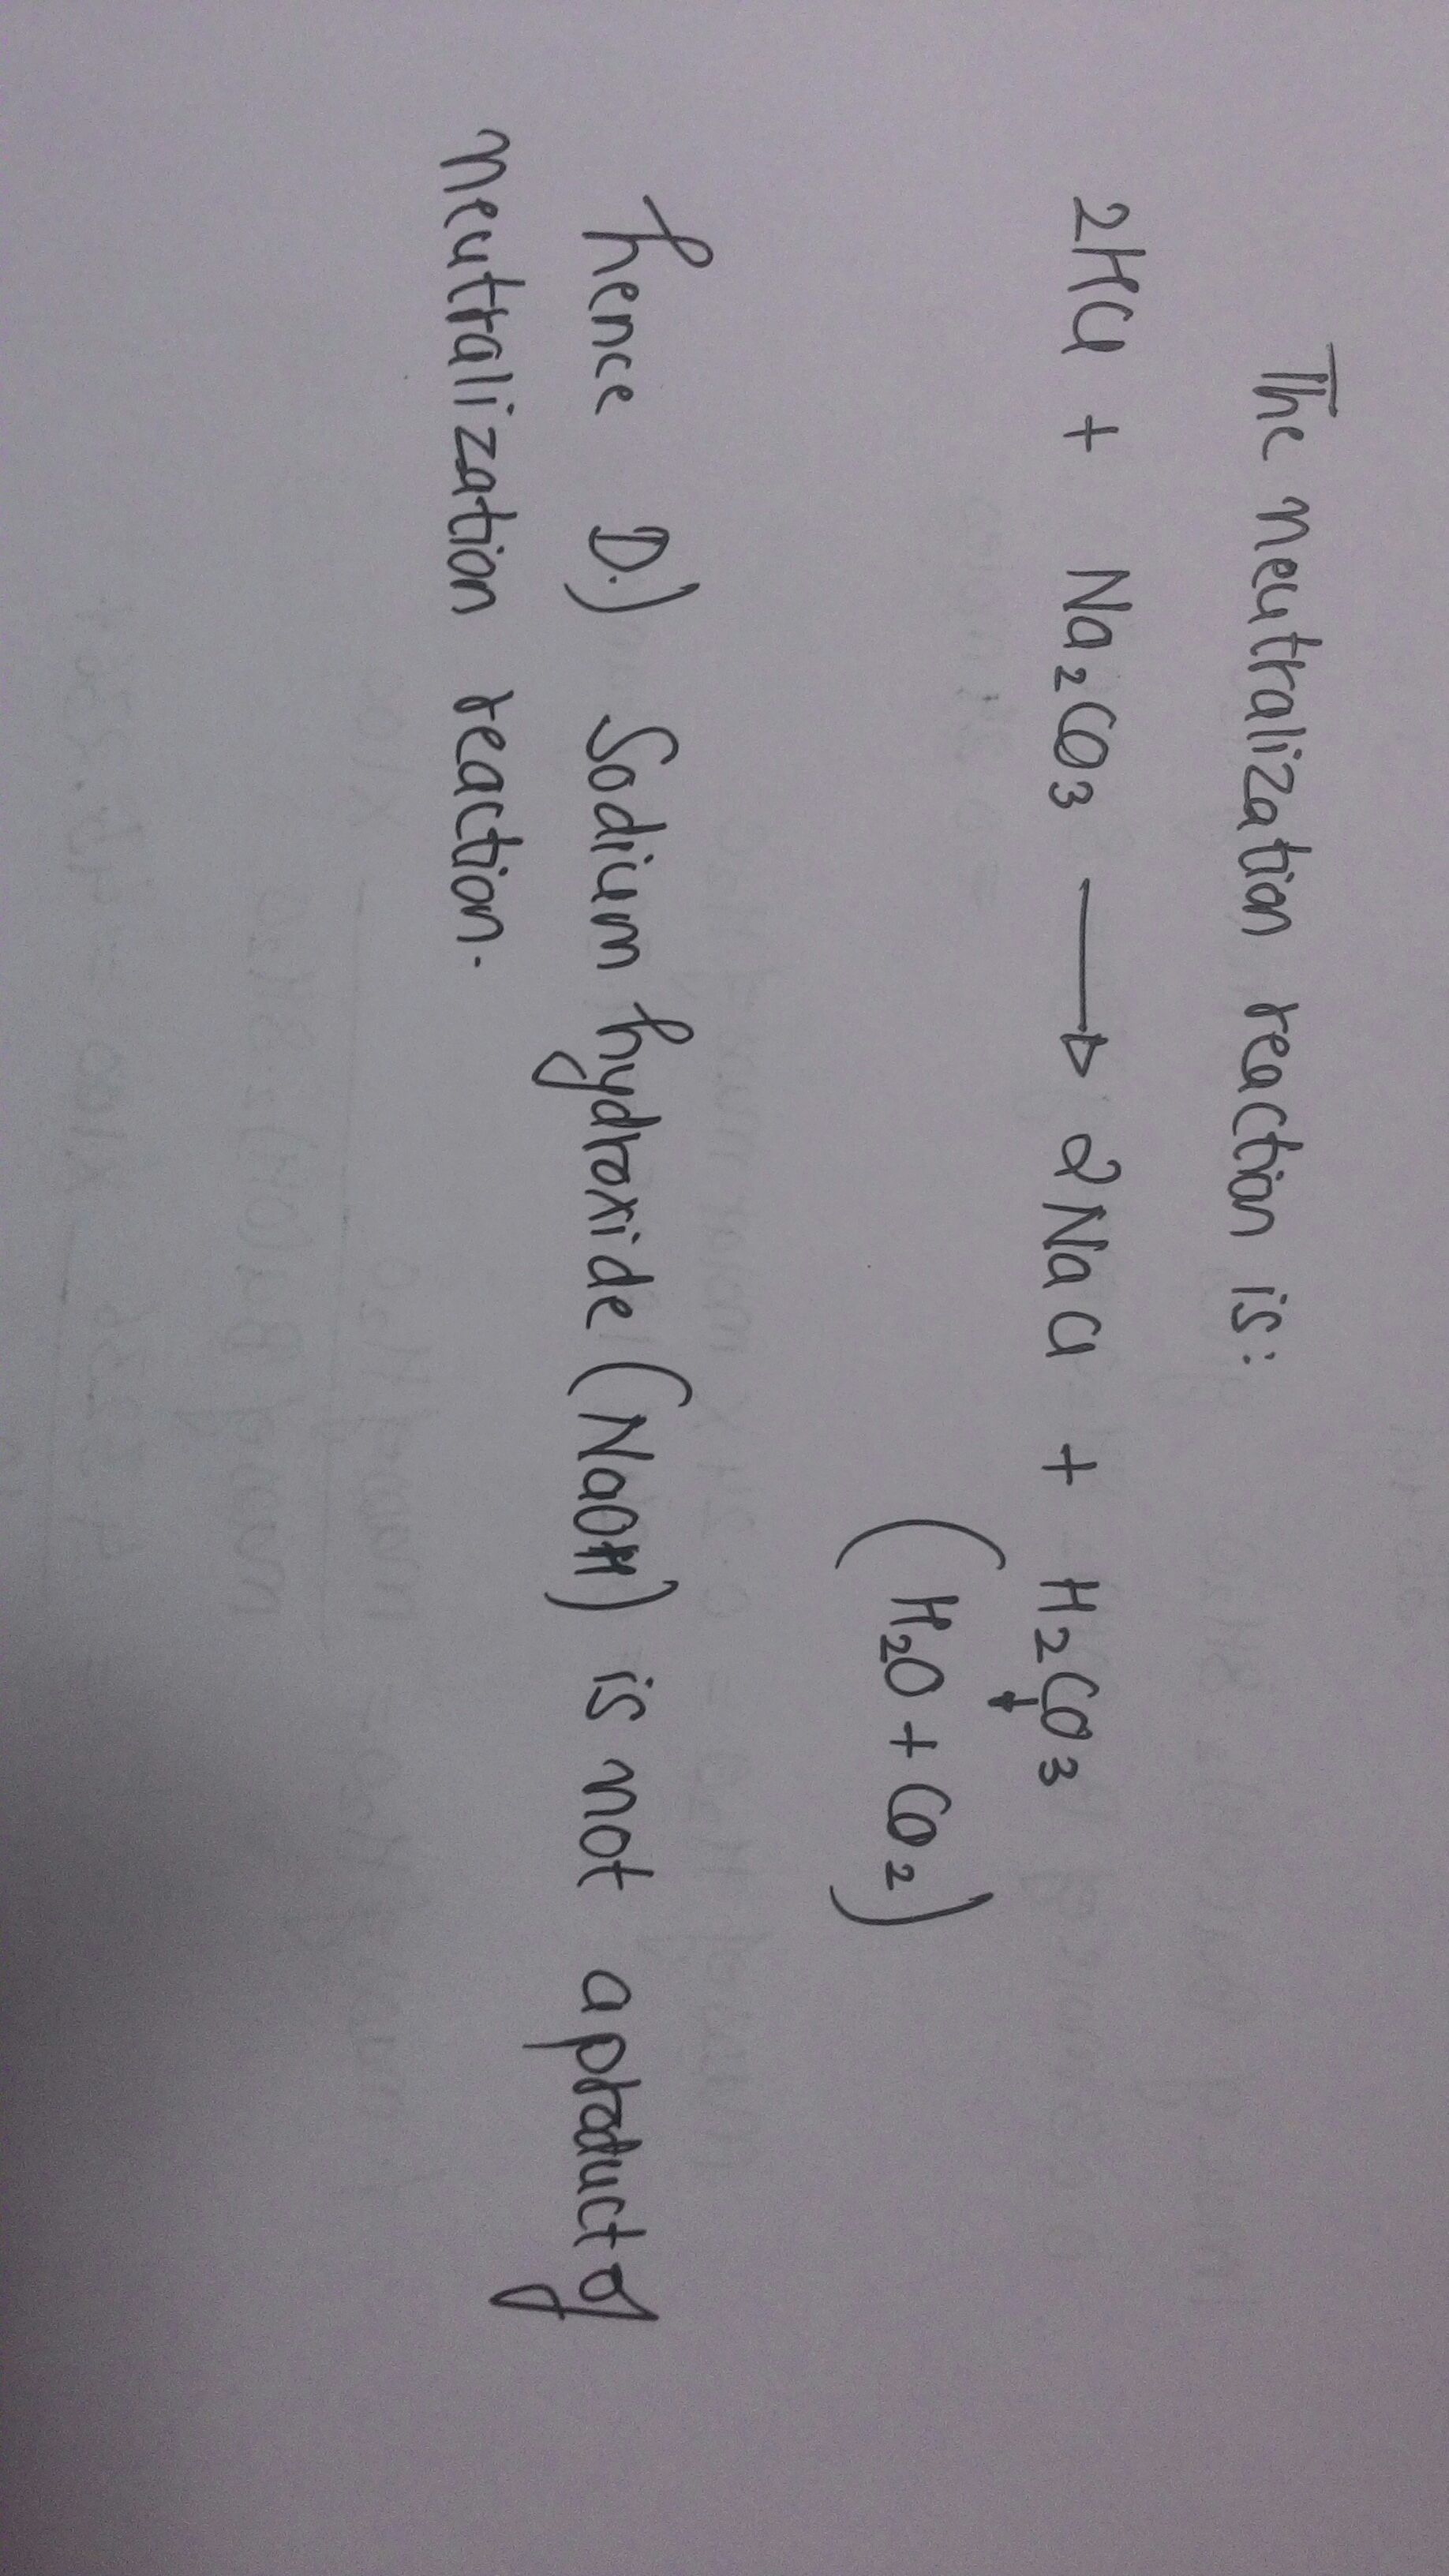 The neutralization reaction is:
2HCl + Na₂CO₃ ⟶ 2NaCl + H₂CO₃
↓
(H₂O + CO₂)
hence D.) Sodium hydroxide (NaOH) is not a product of
neutralization reaction.